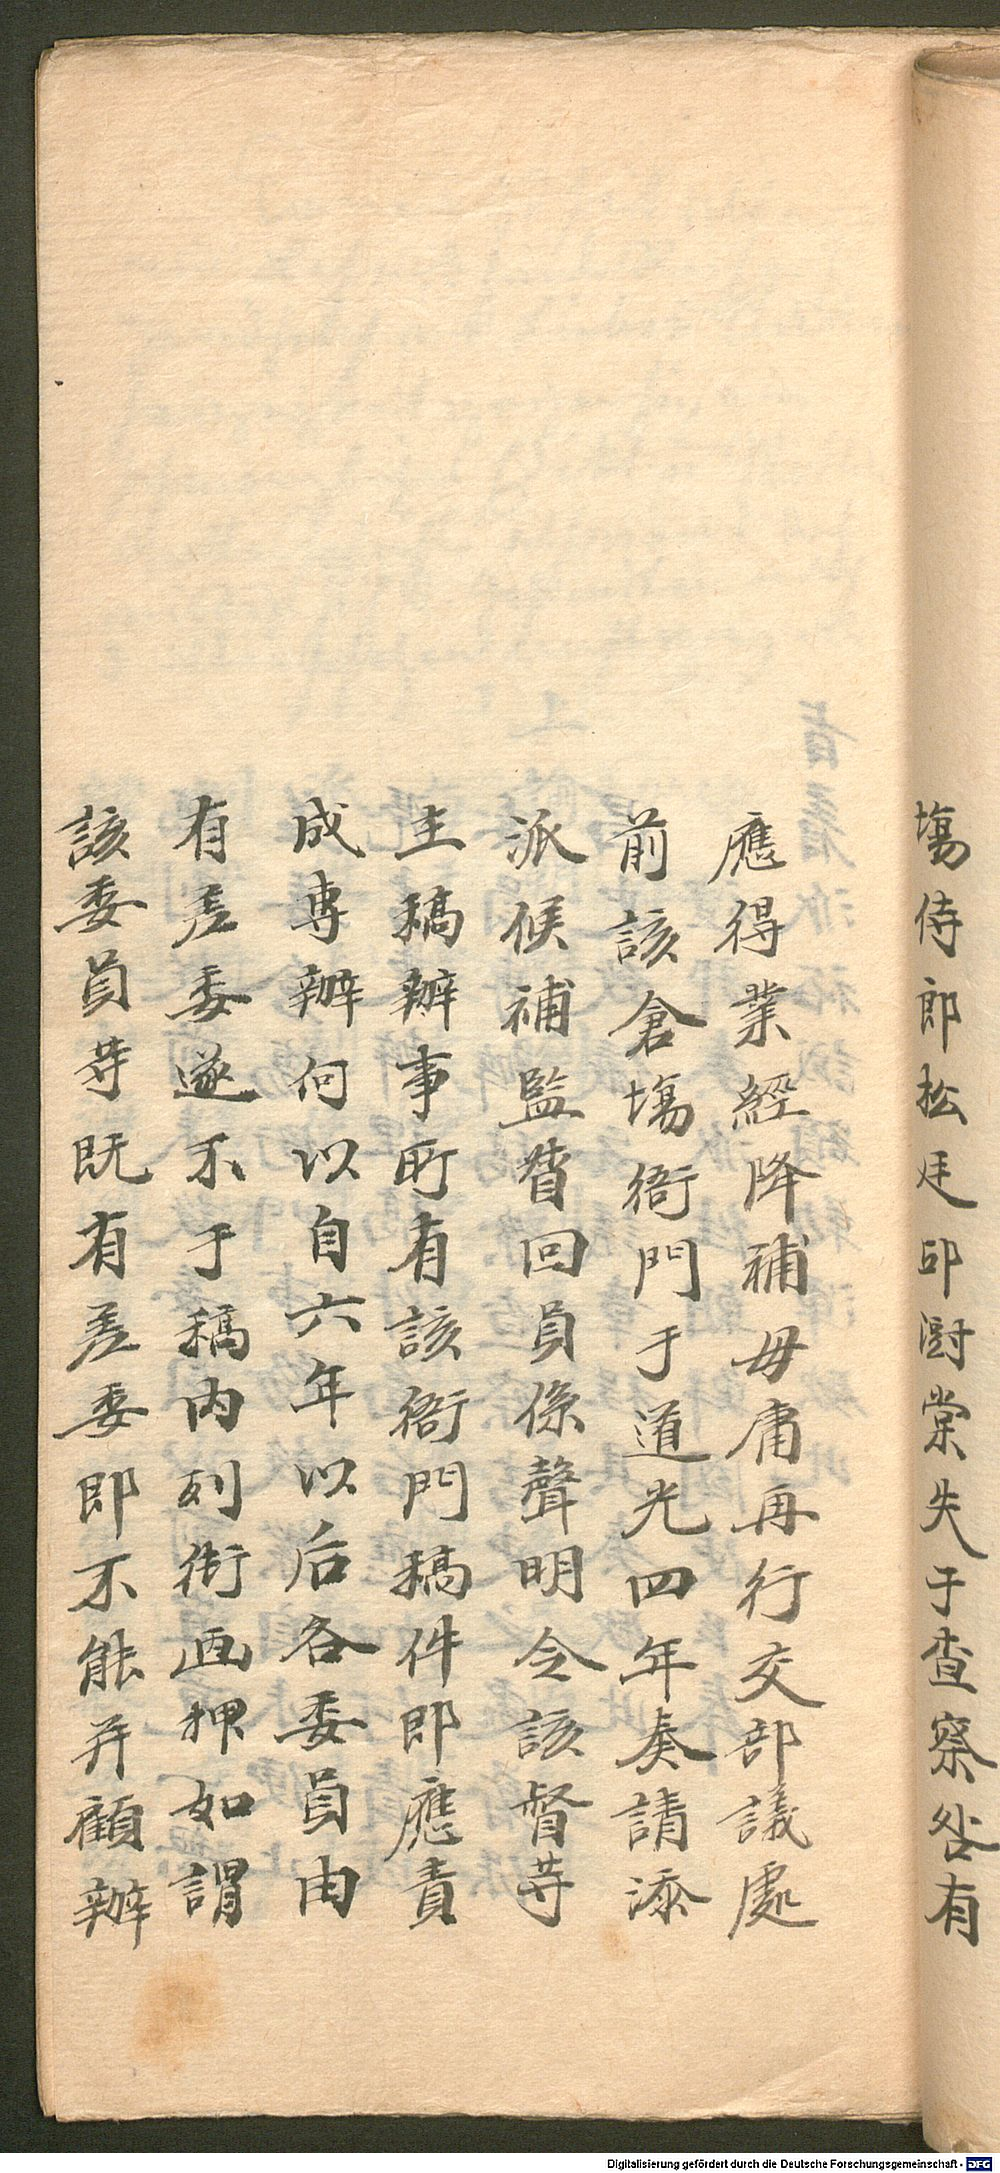 塲侍郎松廷邱澍棠失于查察咎有
應得業經降補毋庸再行交部議處
前該倉塲衙門于道光四年奏請添
派候補監督回員係聲明令該督䓁
主稿辦事所有該衙門稿件即應責
成專辦何以自六年以后各委員由
有差委遂不于稿內列銜画押如謂
該委員䓁既有差委即不能并顧辦
Digitalisierung gefördert durch die Deutsche Forschungsgemeinschaft - DFG